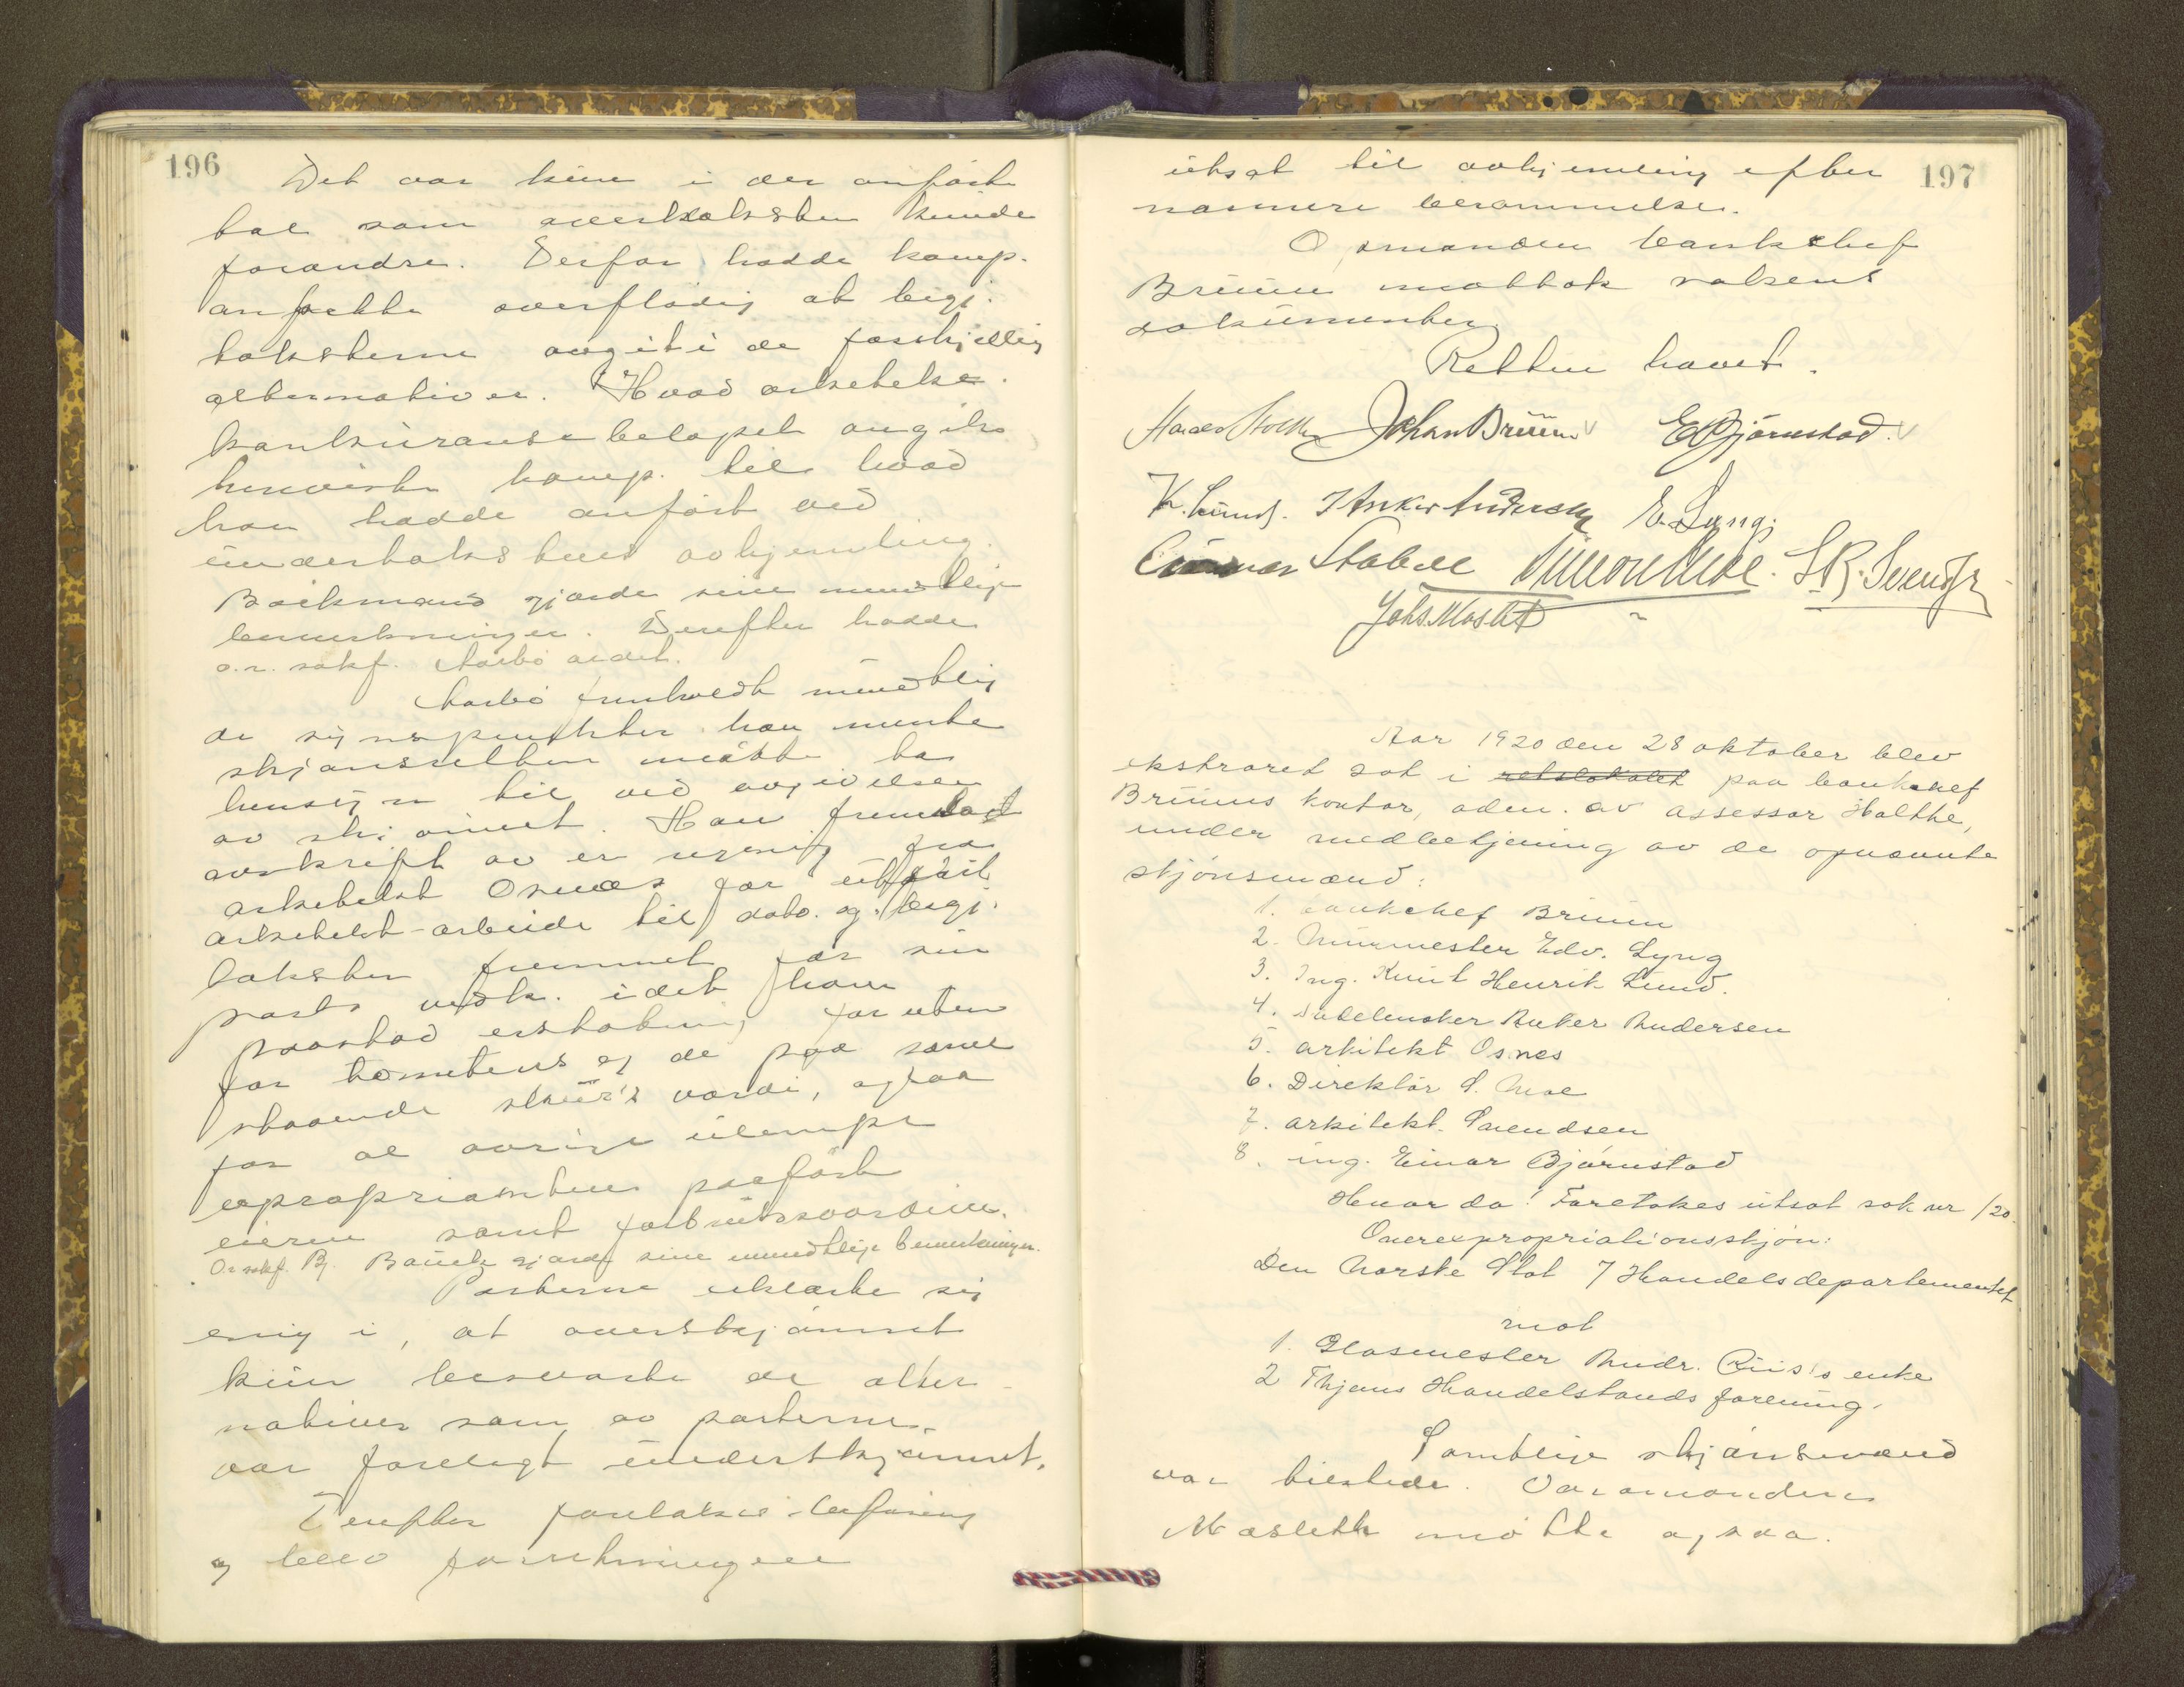 196
Det var kun i der anførte
tal som overtaksten kunde
forandre. Derfor hadde komp.
anset det overflødig at begj.
taksterne avgit i de forskjellig
alternativer. Hvad arkitekt-
konkuransebeløpet angik
henviste komp. til hvad
han hadde anført ved
undertakstens avhjemling.
Backmand gjorde sine mundtlige
bemerkninger. Derefter hadde
o.r. sakf. Aarbo ordet.
Aarbo fremholdt mundtlig
de synspunkter han mente
skjønsretten maatte ta
hensyn til ved avgivelsen
av skjønnet. Han fremlagt
avskrift av en regning fra
arkitekt Osnes for utført
arkitekt-arbeide til dato. og begj.
taksten fremmet for sin
parts vedk. idet han
paastod erstatning foruten
for tomtens og de paa samme
staaende skur's værdi, ogsaa
for al øvrige ulempe
expropriasionen paaført
eieren samt forbrutsværdien.
Or sakf. Bj. gjorde sine mundtlige bemerkninger.
Parterne erklærte sig
enig i, at overskjønnet
kun besvarte de alter-
nativer som av parterne
var forelagt underskjønnet.
Derefter foretakes befaring
og blev forretningen
197
utsat til avhjemling efter
nærmere berammelse.
Ormanden bankchef
Bruun mottok saksens
dokumenter
Retten hævet.
Johan Bruun E Bjørnstad.
K. Lund. J Anker Andersen E. Lyng.
Stabell Simon Moe. S.R. Svendsen
Johs Masleth
Aar 1920 den 28 oktober blev
ekstraret sat i retslokalet paa bankchef
Bruuns kontor, adm. av assessor Holthe,
under medbetjening av de opnævnte
skjønsmænd:
1. bankchef Bruun
2. Murmester Edv. Lyng
3. Ing. Knut Henrik Lund.
4. Anker Andersen
5. arkitekt Osnes
6. Direktør S. Moe
7. arkitekt Svendsen
8. ing. Einar Bjørnstad
Hvor da! Foretakes utsat sak nr /20.
Overexpropriationsskjøn:
Den Norske Stat / Handelsdepartementet
mot
1. Glasmester Andr. Riis's enke
2 Thjems Handelstands forening.
Samtlige skjønsmænd
var tilstede. Varamanden
Masleth møtte ogsaa.